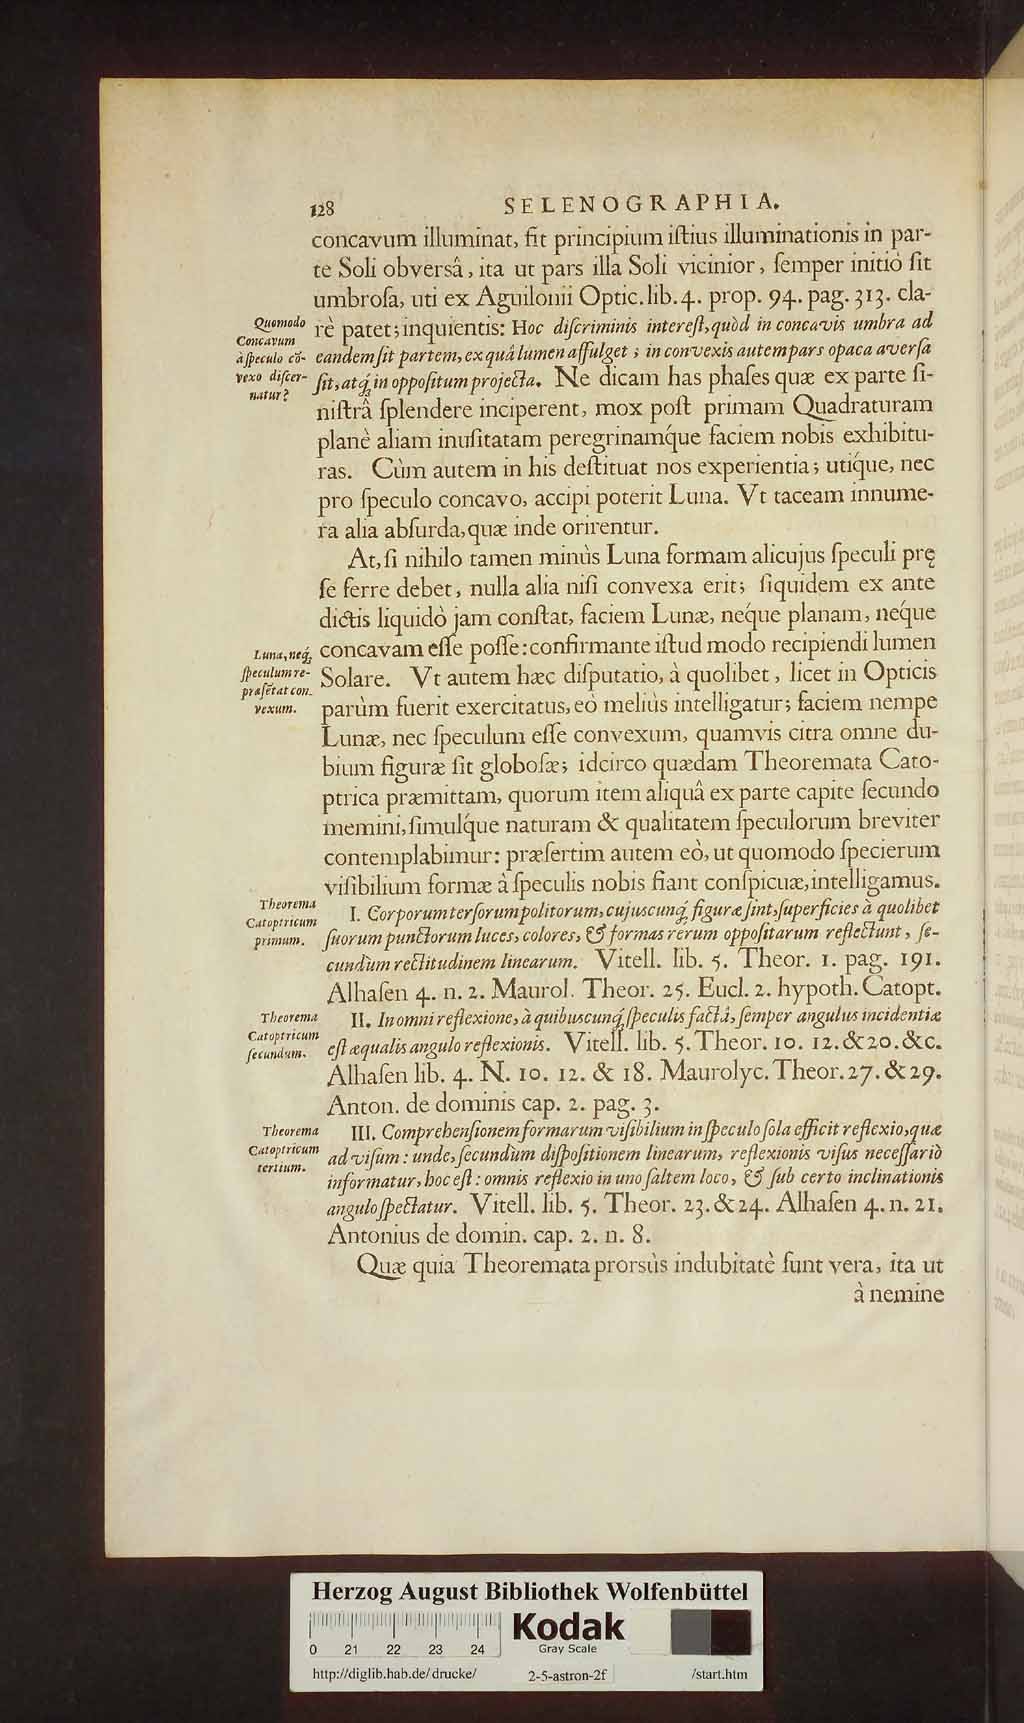 128 SELENOGRAPHIA.
concavum illuminat, fit principium iſtius illuminationis in par-
te Soli obversâ, ita ut pars illa Soli vicinior, ſemper initiò ſit
umbroſa, uti ex Aguilonii Optic. lib. 4. prop. 94. pag. 313. cla-
Quomodo
Concavum
à ſpeculo cõ-
vexo diſcer-
natur?
rè patet; inquientis: Hoc diſcriminis intereſt, quòd in concavis umbra ad
eandem ſit partem, ex quâ lumen affulget; in convexis autem pars opaca averſa
ſit, atq́; in oppoſitum projecta. Ne dicam has phaſes quæ ex parte ſi-
niſtrâ ſplendere inciperent, mox poſt primam Quadraturam
planè aliam inuſitatam peregrinamq́ue faciem nobis exhibitu-
ras. Cùm autem in his deſtituat nos experientia; utiq́ue, nec
pro ſpeculo concavo, accipi poterit Luna. Vt taceam innume-
ra alia abſurda, quæ inde orirentur.
At, ſi nihilo tamen minùs Luna formam alicujus ſpeculi prę
ſe ferre debet, nulla alia niſi convexa erit; ſiquidem ex ante
dictis liquidò jam conſtat, faciem Lunæ, neq́ue planam, neq́ue
Luna, neq́;
ſpeculum re-
præſẽtat con-
vexum.
concavam eſſe poſſe: confirmante iſtud modo recipiendi lumen
Solare. Vt autem hæc diſputatio, à quolibet, licet in Opticis
parùm fuerit exercitatus, eò meliùs intelligatur; faciem nempe
Lunæ, nec ſpeculum eſſe convexum, quamvis citra omne du-
bium figuræ ſit globoſæ; idcirco quædam Theoremata Cato-
ptrica præmittam, quorum item aliquâ ex parte capite ſecundo
memini, ſimulq́ue naturam & qualitatem ſpeculorum breviter
contemplabimur: præſertim autem eò, ut quomodo ſpecierum
viſibilium formæ à ſpeculis nobis fiant conſpicuæ, intelligamus.
Theorema
Catoptricum
primum.
I. Corporum terſorum politorum, cujuscunq́; figuræ ſint, ſuperficies à quolibet
ſuorum punctorum luces, colores, & formas rerum oppoſitarum reflectunt, ſe-
cundùm rectitudinem linearum. Vitell. lib. 5. Theor. 1. pag. 191.
Alhaſen 4. n. 2. Maurol. Theor. 25. Eucl. 2. hypoth. Catopt.
Theorema
Catoptricum
ſecundum.
II. In omni reflexione, à quibuscunq́; ſpeculis factâ, ſemper angulus incidentiæ
eſt æqualis angulo reflexionis. Vitell. lib. 5. Theor. 10. 12. & 20. &c.
Alhaſen lib. 4. N. 10. 12. & 18. Maurolyc. Theor. 27. & 29.
Anton. de dominis cap. 2. pag. 3.
Theorema
Catoptricum
tertium.
III. Comprehenſionem formarum viſibilium in ſpeculo ſola efficit reflexio, quæ
ad viſum: unde, ſecundùm diſpoſitionem linearum, reflexionis viſus neceſſariò
informatur, hoc eſt: omnis reflexio in uno ſaltem loco, & ſub certo inclinationis
angulo ſpectatur. Vitell. lib. 5. Theor. 23. & 24. Alhaſen 4. n. 21.
Antonius de domin. cap. 2. n. 8.
Quæ quia Theoremata prorsùs indubitatè ſunt vera, ita ut
à nemine
Herzog August Bibliothek Wolfenbüttel
Kodak
Gray Scale
0 21 22 23 24
http://diglib.hab.de/drucke/ 2-5-astron-2f /start.htm